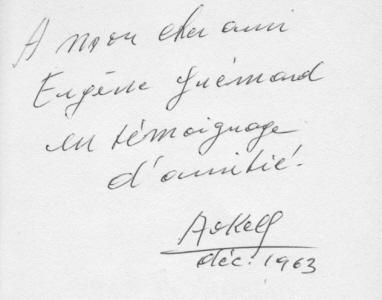 A mon cher ami
Eugène Guémard
en témoignage
d'amitié.
déc. 1963